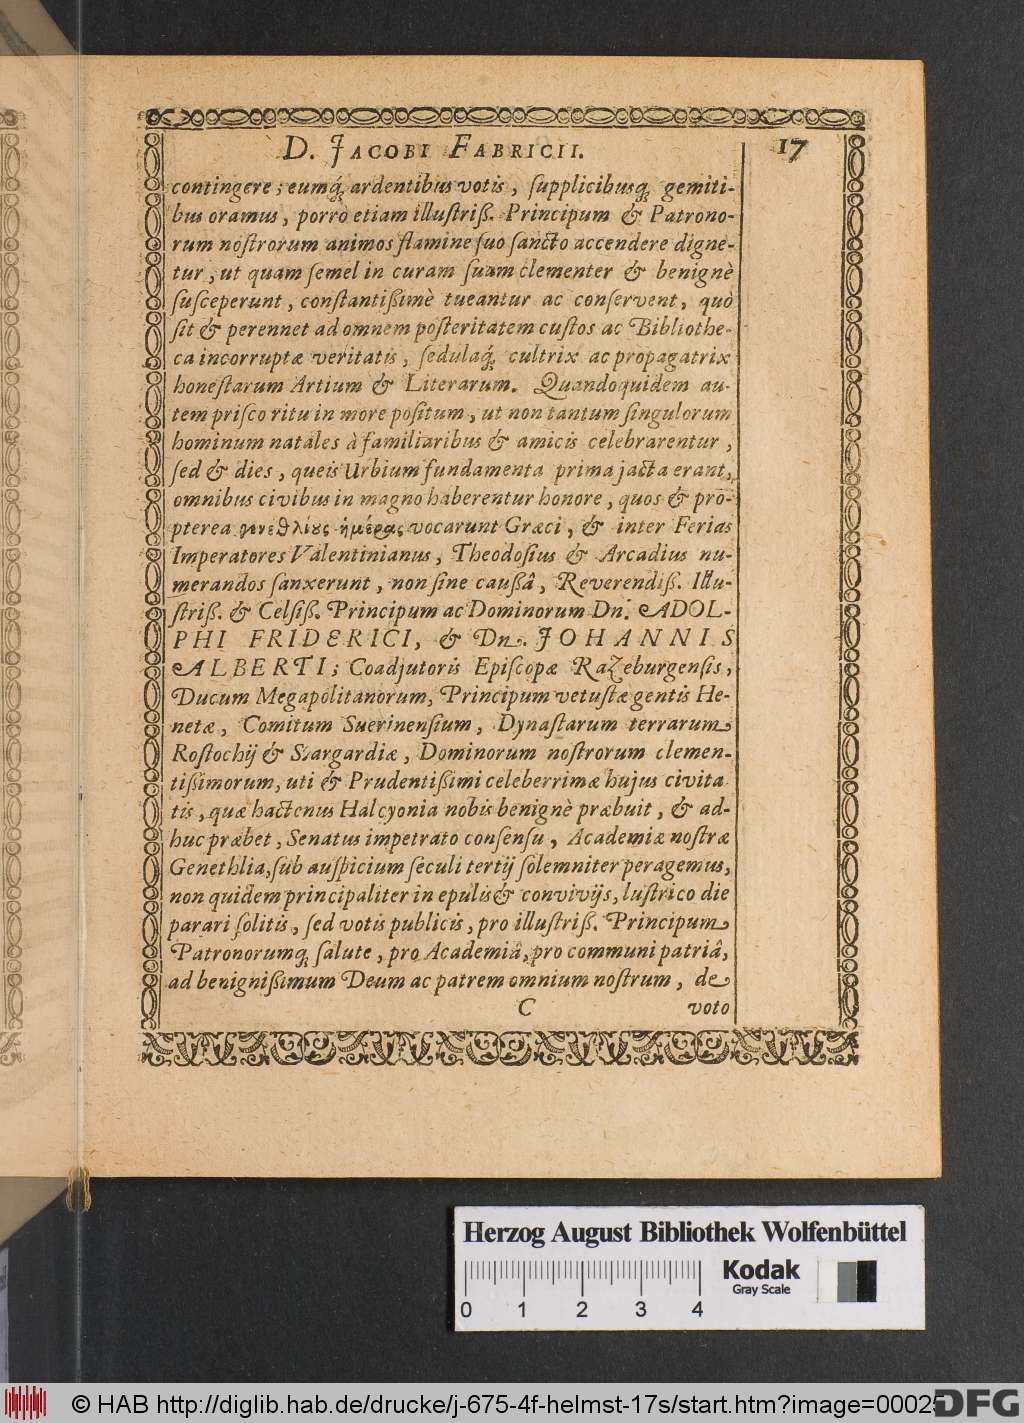 D. JACOBI FABRICII. 17
contingere; eumq́; ardentibus votis, ſupplicibusq́; gemiti-
bus oramus, porrò etiam illuſtriſſ. Principum & Patrono-
rum noſtrorum animos flamine ſuo ſancto accendere digne-
tur, ut quam ſemel in curam ſuam clementer & benignè
ſuſceperunt, conſtantiſſimè tueantur ac conſervent, quò
ſit & perennet ad omnem poſteritatem cuſtos ac Bibliothe-
ca incorruptæ veritatis, ſedulaq́; cultrix ac propagatrix
honeſtarum Artium & Literarum. Quandoquidem au-
tem priſco ritu in more poſitum, ut non tantum ſingulorum
hominum natales à familiaribus & amicis celebrarentur,
ſed & dies, queis Urbium fundamenta prima jacta erant,
omnibus civibus in magno haberentur honore, quos & pro-
pterea γενεθλίους ἡμέρας vocarunt Græci, & inter Ferias
Imperatores Valentinianus, Theodoſius & Arcadius nu-
merandos ſanxerunt, non ſine cauſſâ, Reverendiſſ. Illu-
ſtriſſ. & Celſiſſ. Principum ac Dominorum Dn. ADOL-
PHI FRIDERICI, & Dn. JOHANNIS
ALBERTI; Coadjutoris Epiſcopæ Razeburgenſis,
Ducum Megapolitanorum, Principum vetuſtæ gentis He-
netæ, Comitum Suerinenſium, Dynaſtarum terrarum
Roſtochij & Stargardiæ, Dominorum noſtrorum clemen-
tiſſimorum, uti & Prudentiſſimi celeberrimæ hujus civita
tis, quæ hactenus Halcyonia nobis benignè præbuit, & ad-
huc præbet, Senatus impetrato conſenſu, Academiæ noſtræ
Genethlia, ſub auſpicium ſeculi tertij ſolemniter peragemus,
non quidem principaliter in epulis & convivijs, luſtrico die
parari ſolitis, ſed votis publicis, pro illuſtriſſ. Principum
Patronorumq́; ſalute, pro Academiâ, pro communi patriâ,
ad benigniſſimum Deum ac patrem omnium noſtrum, de
C voto
Herzog August Bibliothek Wolfenbüttel
Kodak
Gray Scale
0 1 2 3 4
© HAB http://diglib.hab.de/drucke/j-675-4f-helmst-17s/start.htm?image=00025
DFG